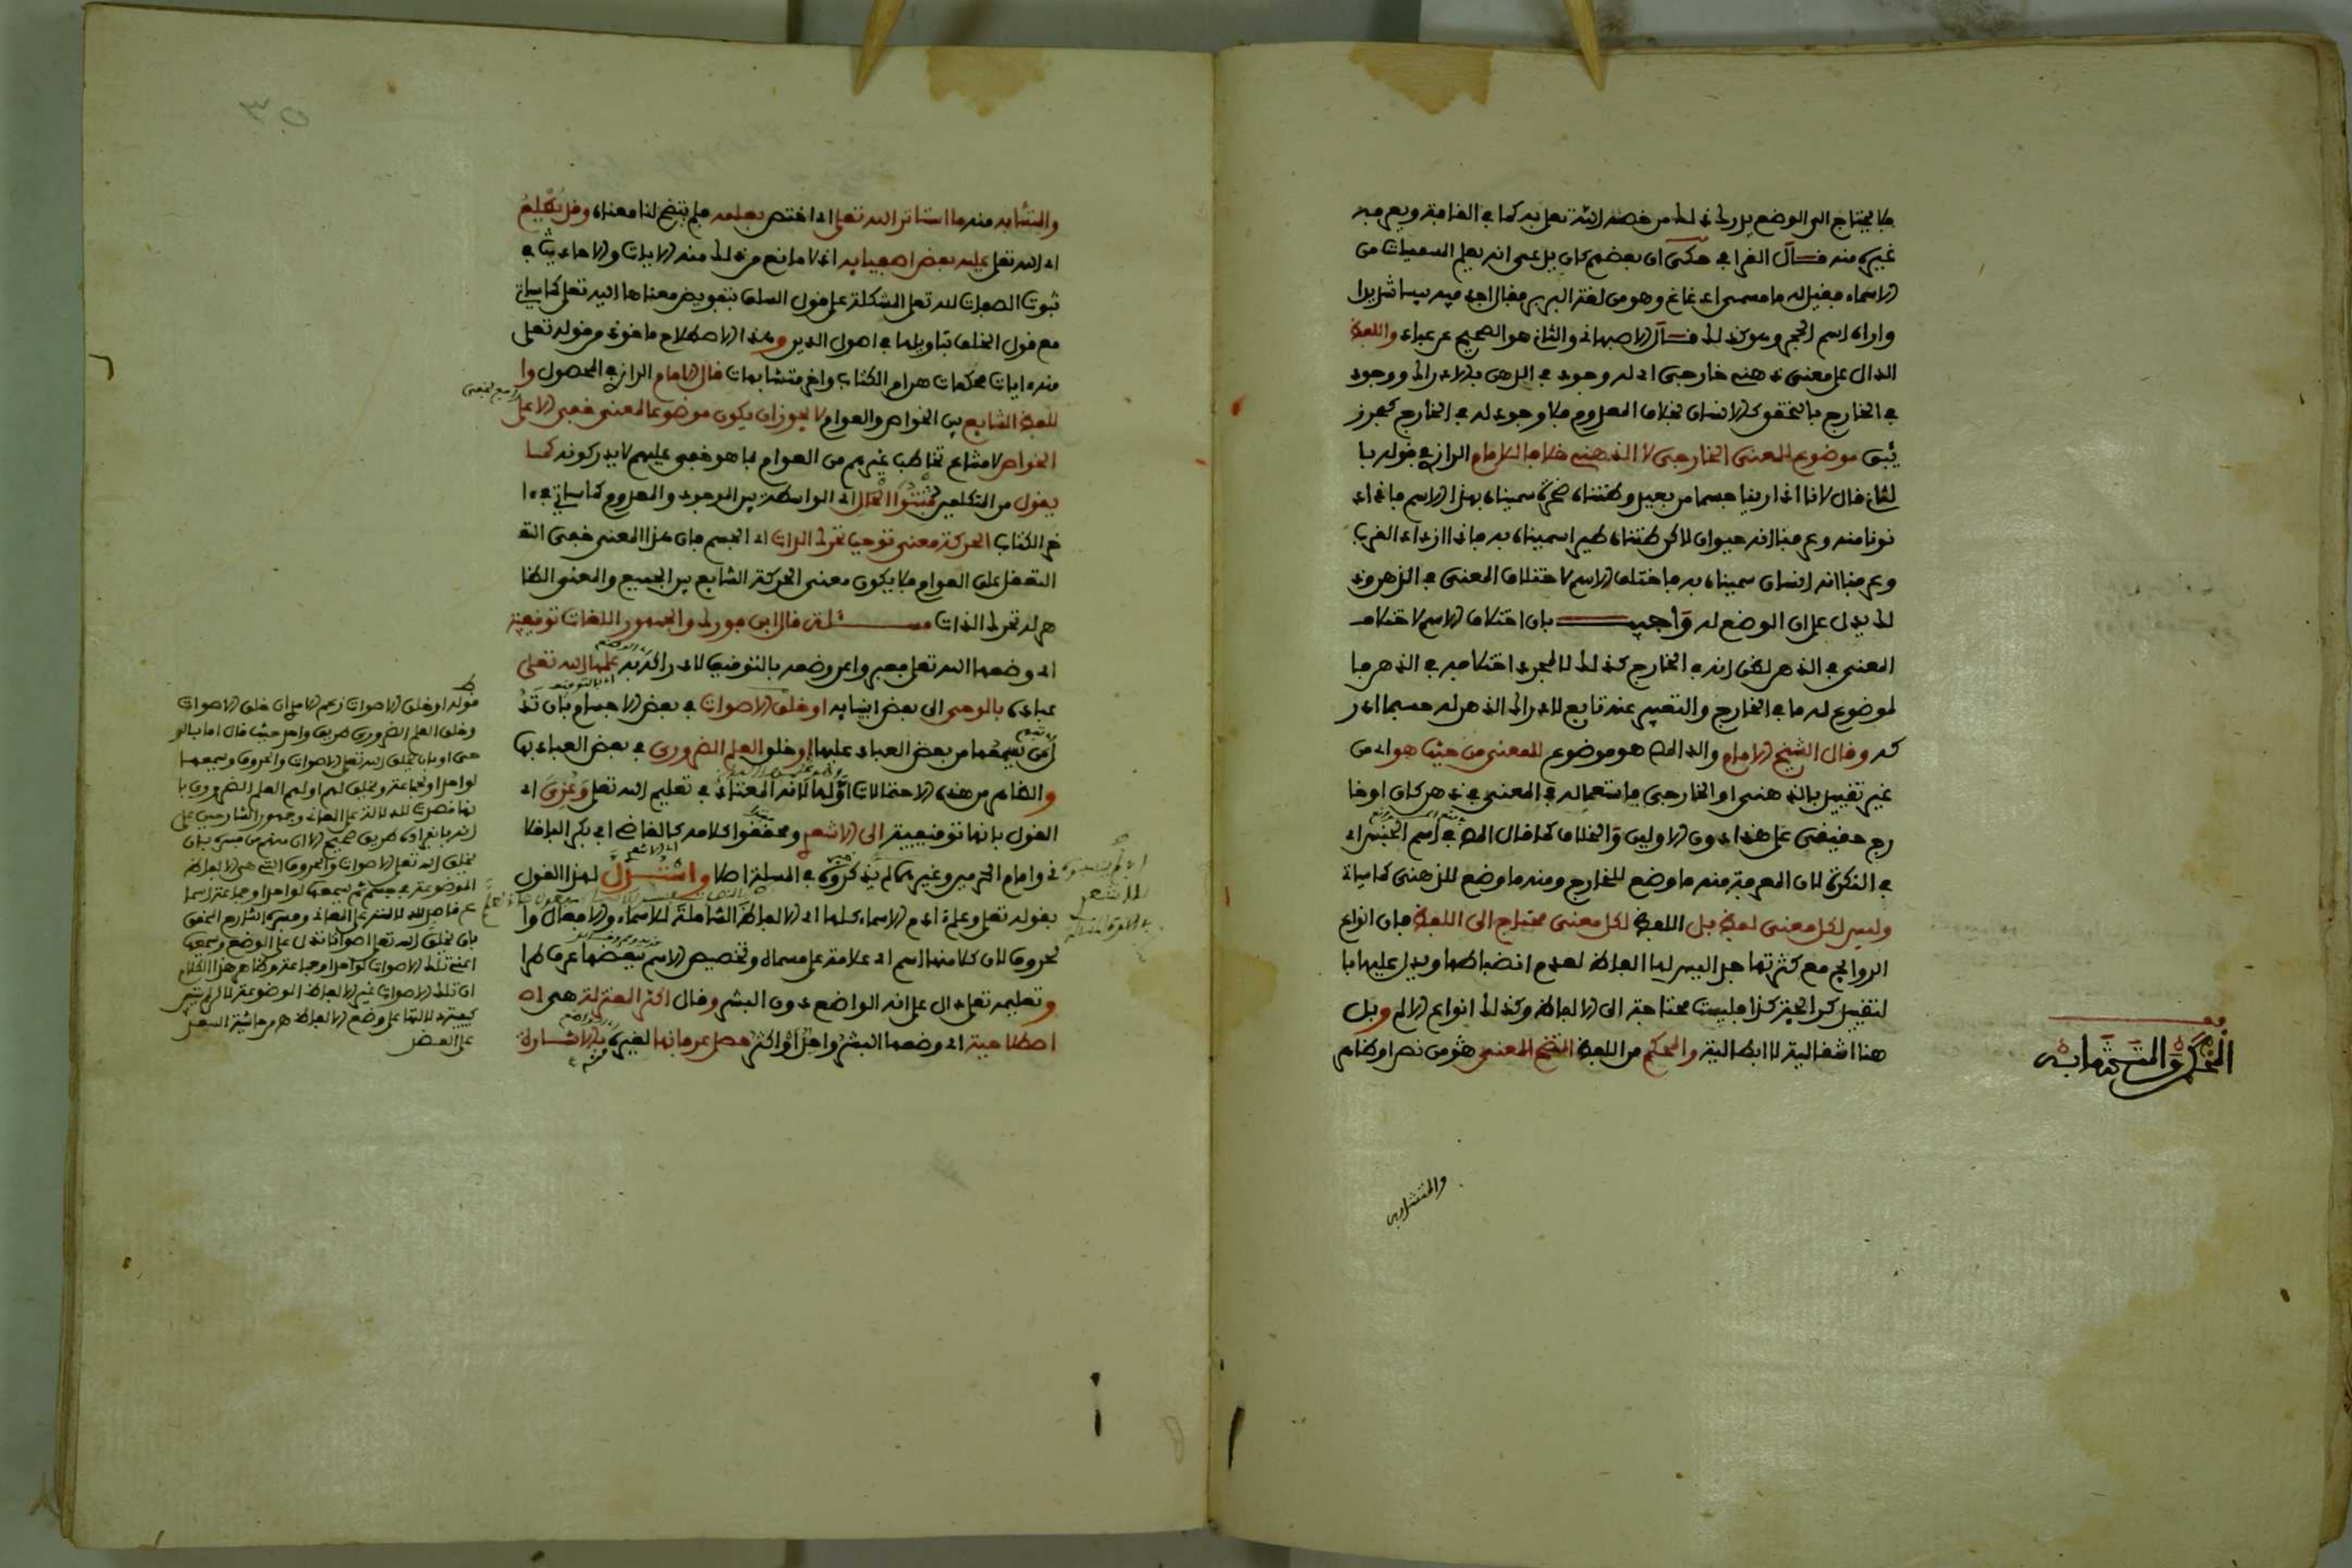 فلا يحتاج الى الوضع يدرك ذلك من خصه الله تعلى به كما في القافة ويعرفه
غيره منه قال القرافي حكى ان بعضهم كان يدعى انه يعلم المسميات من
الاسماء فقيل له ما مسمى اذغاغ وهو من لغة البربر فقال اجد فيه يبسا شديدا
واراه اسم الحجر وهو كذلك قال الاصبهاني والثاني هو الصحيح عن عباد واللفظ
الدال على معنى ذهني خارجي اي له وجود في الذهن بالادراك ووجود
في الخارج بالتحقق كالانسان بخلاف المعدوم فلا وجود له في الخارج كبحر ز
ئبق موضوع للمعنى الخارجي لا الذهني خلافا للامام الرازي في قوله با
لثاني قال لانا اذا راينا جسما من بعيد وظنناه صخرة سميناه بهذا الاسم فاذا د
نونا منه وعرفنا انه حيوان لاكن ظنناه طيرا سميناه به فاذا ازداد القرب
وعرفنا انه انسان سميناه به فاختلف الاسم لاختلاف المعنى في الذهن وذ
لك يدل على ان الوضع له واجيب بان اختلاف الاسم لاختلاف
المعنى في الذهن لظن انه في الخارج كذلك لا لمجرد اختلافه في الذهن فا
لموضوع له ما في الخارج والتعبير عنه تابع لادراك الذهن له حسبما ادر
كه وقال الشيخ الامام والد المص هو موضوع للمعنى من حيث هو اي من
غير تقييد بالذهني او الخارجي فاستعماله في المعنى في ذهن كان او خا
رج حقيقي على هذا دون الاولين والخلاف كما قال المص في اسم الجنس اي
في النكرة لان المعرفة منه ما وضع للخارج ومنه ما وضع للذهني كما سياتي
وليس لكل معنى لفظ بل اللفظ لكل معنى محتاج الى اللفظ فان انواع
الروائح مع كثرتها جدا ليس لها الفاظ لعدم انضباطها ويدل عليها با
لتقييد كرائحة كذا فليست محتاجة الى الالفاظ وكذلك انواع الالم وبل
هنا انتقالية لا ابطالية والمحكم من اللفظ المتضح المعنى من نص او ظاهر
المحكم والمتشابه
والمتشابه
٣٥
والمتشابه منه ما استاثر الله تعلى اي اختص بعلمه فلم يتضح لنا معناه وقد يطلع
اي الله تعلى عليه بعض اصفيائه اذ لا مانع من ذلك منه الايات والاحاديث في
ثبوت الصفات لله تعلى المشكلة على قول السلف بتفويض معناها اليه تعلى كما سياتي
مع قول الخلف بتاويلها في اصول الدين وهذا الاصطلاح ماخوذ من قوله تعلى
منه ايات محكمات هن ام الكتاب واخر متشابهات قال الامام الرازي في المحصول وا
للفظ الشايع بين الخواص والعوام لا يجوز ان يكون موضوعا لمعنى خفي الا على
الخواص لامتناع تخاطب غيرهم من العوام بما هو خفي عليهم لا يدركونه كما
يقول من المتكلمين مثبتوا الحال اي الواسطة بين الموجود والمعدوم كما سياتي في ءا
خر الكتاب الحركة معنى توجب تحرك الذات اي الجسم فان هذا المعنى خفي التع
التعقل على العوام فلا يكون معنى الحركة الشايع بين الجميع والمعنى الظا
هر له تحرك الذات مسئلة قال ابن فورك والجمهور اللغات توقيفية
اي وضعها الله تعلى فعبروا عن وضعه بالتوقيف لادراكه به علمها الله تعلى
عباده بالوحي الى بعض انبيايه او خلق الاصوات في بعض الاجسام بان تد
ل من يسمعها من بعض العباد عليها او خلق العلم الضروري في بعض العباد بها
والظاهر من هذه الاحتمالات اولها لانه المعتاد في تعليم الله تعلى وعزي اي
القول بانها توقيفية الى الاشعري ومحققوا كلامه كالقاضي ابي بكر الباقلا
ني وامام الحرمين وغيرهما لم يذكروه في المسئلة اصلا واستدل لهذا القول
بقوله تعلى وعلم ءادم الاسماء كلها اي الالفاظ الشاملة للاسماء والافعال وا
لحروف لان كلا منها اسم اي علامة على مسماه وتخصيص الاسم ببعضها عرف طرا
وتعليمه تعلى دال على انه الواضع دون البشر وقال اكثر المعتزلة هي اص
اصطلاحية اي وضعها البشر واحدا او اكثر حصل عرفانها لغيره بالاشارة
قوله او خلق الاصوات زعم الامام ان خلق الاصوات
وخلق العلم الضروري طريق واحد حيث قال اما بالو
حي او بان يخلق الله تعلى الاصوات والحروف ويسمعها
لواحد او لجماعة ويخلق لهم العلم الضروري با
يخلق الله تعلى الاصوات والحروف التي هي الالفاظ
الموضوعة في جسم ثم يسمعها لواحد او جماعة
بان يخلق الله تعلى اصواتا تدل على الوضع ويسمعه
ان تلك الاصوات غير الالفاظ الموضوعة
على العضد